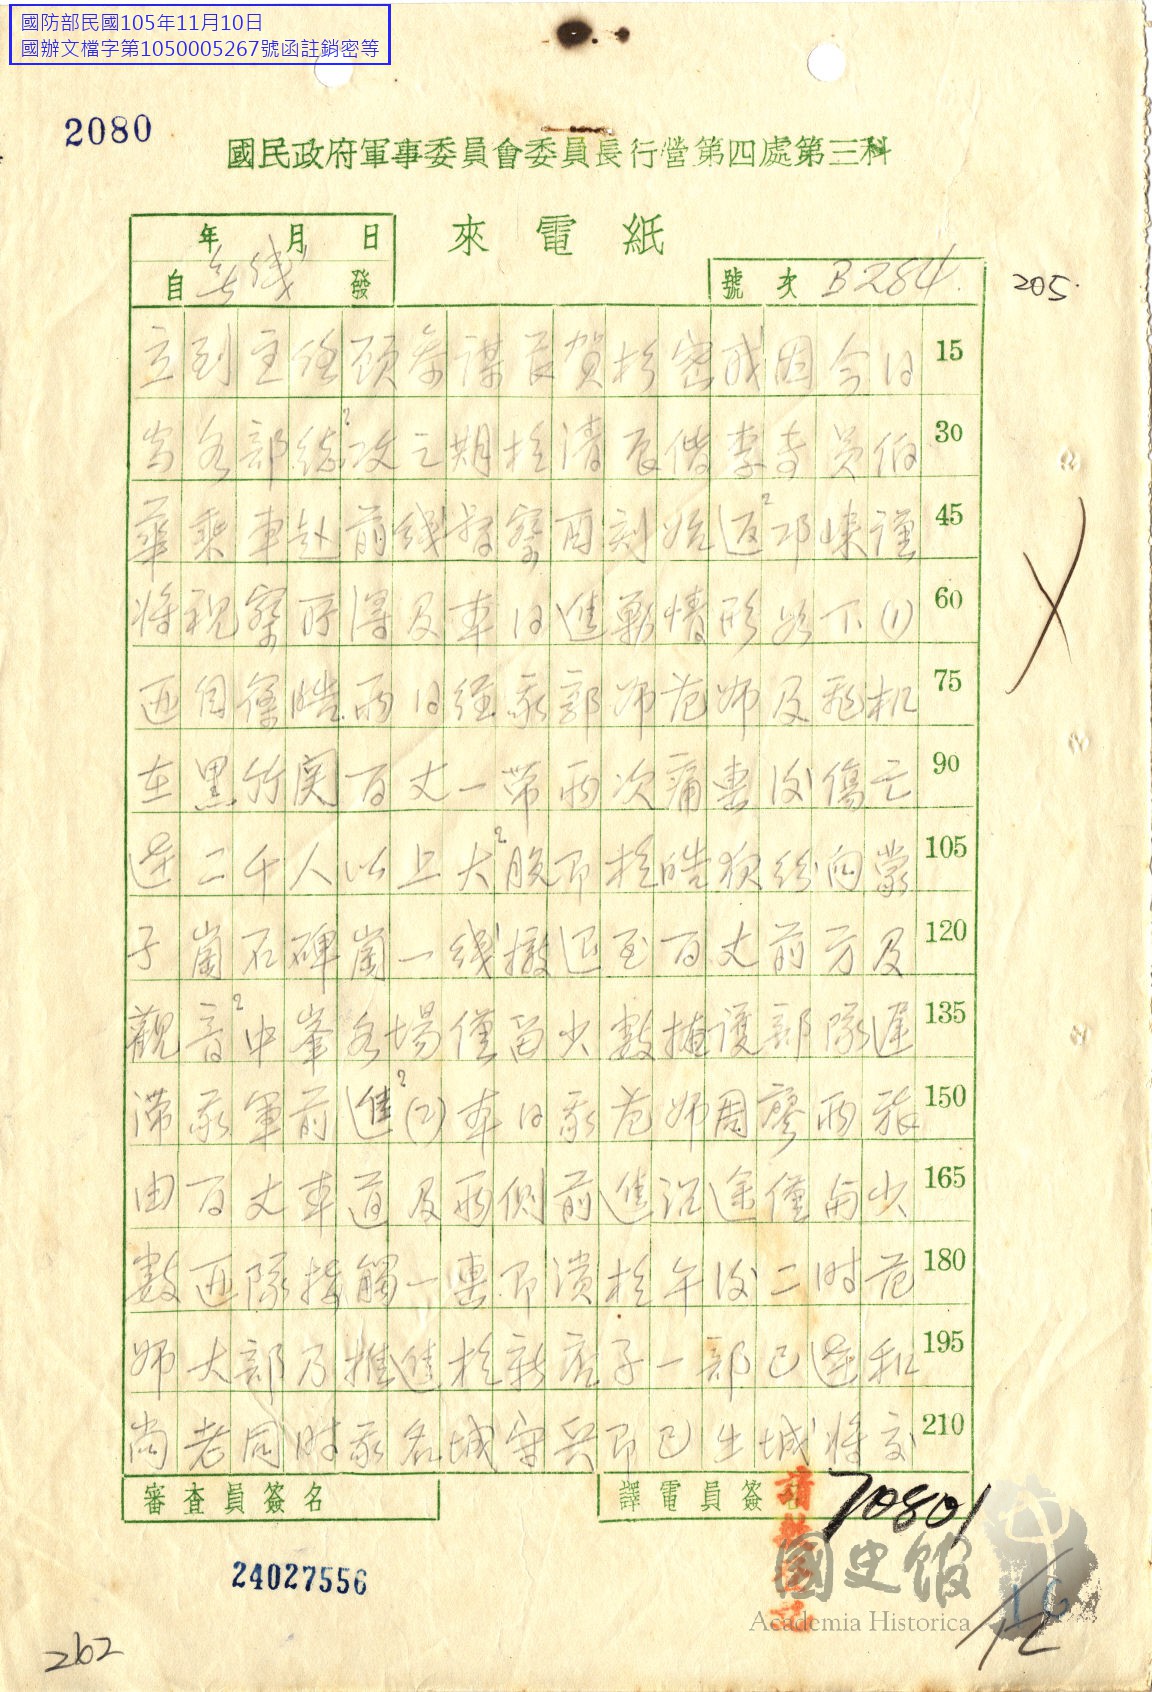 國防部民國105年11月10日
國辦文檔字第1050005267號函註銷密等
2080
國民政府軍事委員會委員長行營第四處第三科
來電紙
年 月 日
自 無線 發
號次 B284.
205.
立到主任顾參謀長賀 密 因今日 15
當各部總攻之期於清晨偕李 員伯 30
華乘車赴前线 察酉刻始返邛崍謹 45
將視察所得及本日進剿情形 下(1) 60
匪自篠皓兩日經我郭师范师及飛机 75
在黑竹関百丈一帶兩次痛擊後傷亡 90
達二千人以上大股即於皓夜 向蒙 105
子崗石碑崗一线撤退至百丈前方及 120
觀音中峯各場僅留少數掩護部隊遲 135
滯我軍前進(2)本日我范师周廖兩旅 150
由百丈車道及兩側前進沿途僅與少 165
數匪隊接觸一擊即潰於午後二时范 180
师大部乃推進於新店子一部已達和 195
尚老同时我名城守兵即已出城將交 210
審查員簽名
譯電員簽名
70801
國史館
Academia Historica
24027556
262
16